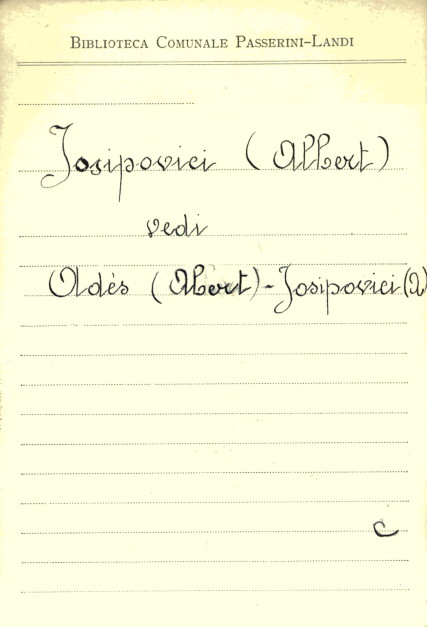 BIBLIOTECA COMUNALE PASSERINI-LANDI
Josipovici (Albert)
vedi
Aldès (Abert)-Josipovici (A)
c